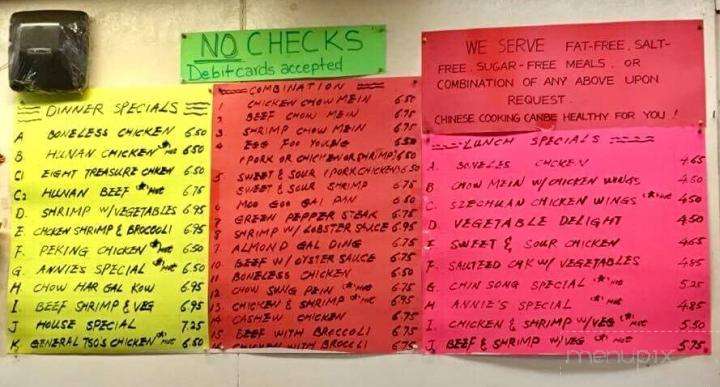 NO CHECKS
Debit cards accepted
WE SERVE FAT-FREE, SALT-
FREE, SUGAR-FREE MEALS, OR
COMBINATION OF ANY ABOVE UPON
REQUEST.
CHINESE COOKING CAN BE HEALTHY FOR YOU!
DINNER SPECIALS
A BONELESS CHICKEN 6.50
B HUNAN CHICKEN *HOT 6.50
C1 EIGHT TREASURE CHKEN 6.50
C2 HUNAN BEEF *HOT 6.75
D. SHRIMP W/VEGETABLES 6.95
E. CHICKEN SHRIMP & BROCCOLI 6.95
F. PEKING CHICKEN *HOT 6.50
G. ANNIES SPECIAL *HOT 6.50
H. CHOW HAR GAL KOW 6.95
I. BEEF SHRIMP & VEG 6.95
J HOUSE SPECIAL 7.25
K. GENERAL TSO'S CHICKEN *HOT 6.50
COMBINATION
1 CHICKEN CHOW MEIN 6.50
2 BEEF CHOW MEIN 6.75
3 SHRIMP CHOW MEIN 6.75
4 EGG FOO YOUNG 6.50
(PORK OR CHICKEN OR SHRIMP) 6.50
5 SWEET & SOUR (PORK CHICKEN) 6.50
SWEET & SOUR SHRIMP 6.75
6 MOO GOO GAI PAN 6.50
7 GREEN PEPPER STEAK 6.75
8 SHRIMP W/LOBSTER SAUCE 6.95
9 ALMOND GAI DING 6.75
10 BEEF W/OYSTER SAUCE 6.75
11 BONELESS CHICKEN 6.50
12 CHOW SUNG PEIN *HOT 6.75
13 CHICKEN & SHRIMP *HOT 6.95
14 CASHEW CHICKEN 6.75
15 BEEF WITH BROCCOLI 6.75
CHICKEN WITH BROCCOLI
LUNCH SPECIALS
A. BONELES CHCKEN 4.65
B CHOW MEIN W/CHICKEN WINGS 4.50
C. SZECHUAN CHICKEN WINGS *HOT 4.50
D. VEGETABLE DELIGHT 4.50
E SWEET & SOUR CHICKEN 4.65
F. SAUTEED CHK W/ VEGETABLES 4.85
G CHIN SONG SPECIAL *HOT 5.25
H ANNIE'S SPECIAL *HOT 4.85
I. CHICKEN & SHRIMP W/VEG *HOT 5.50
J BEEF & SHRIMP W/VEG *HOT 5.75
menupix